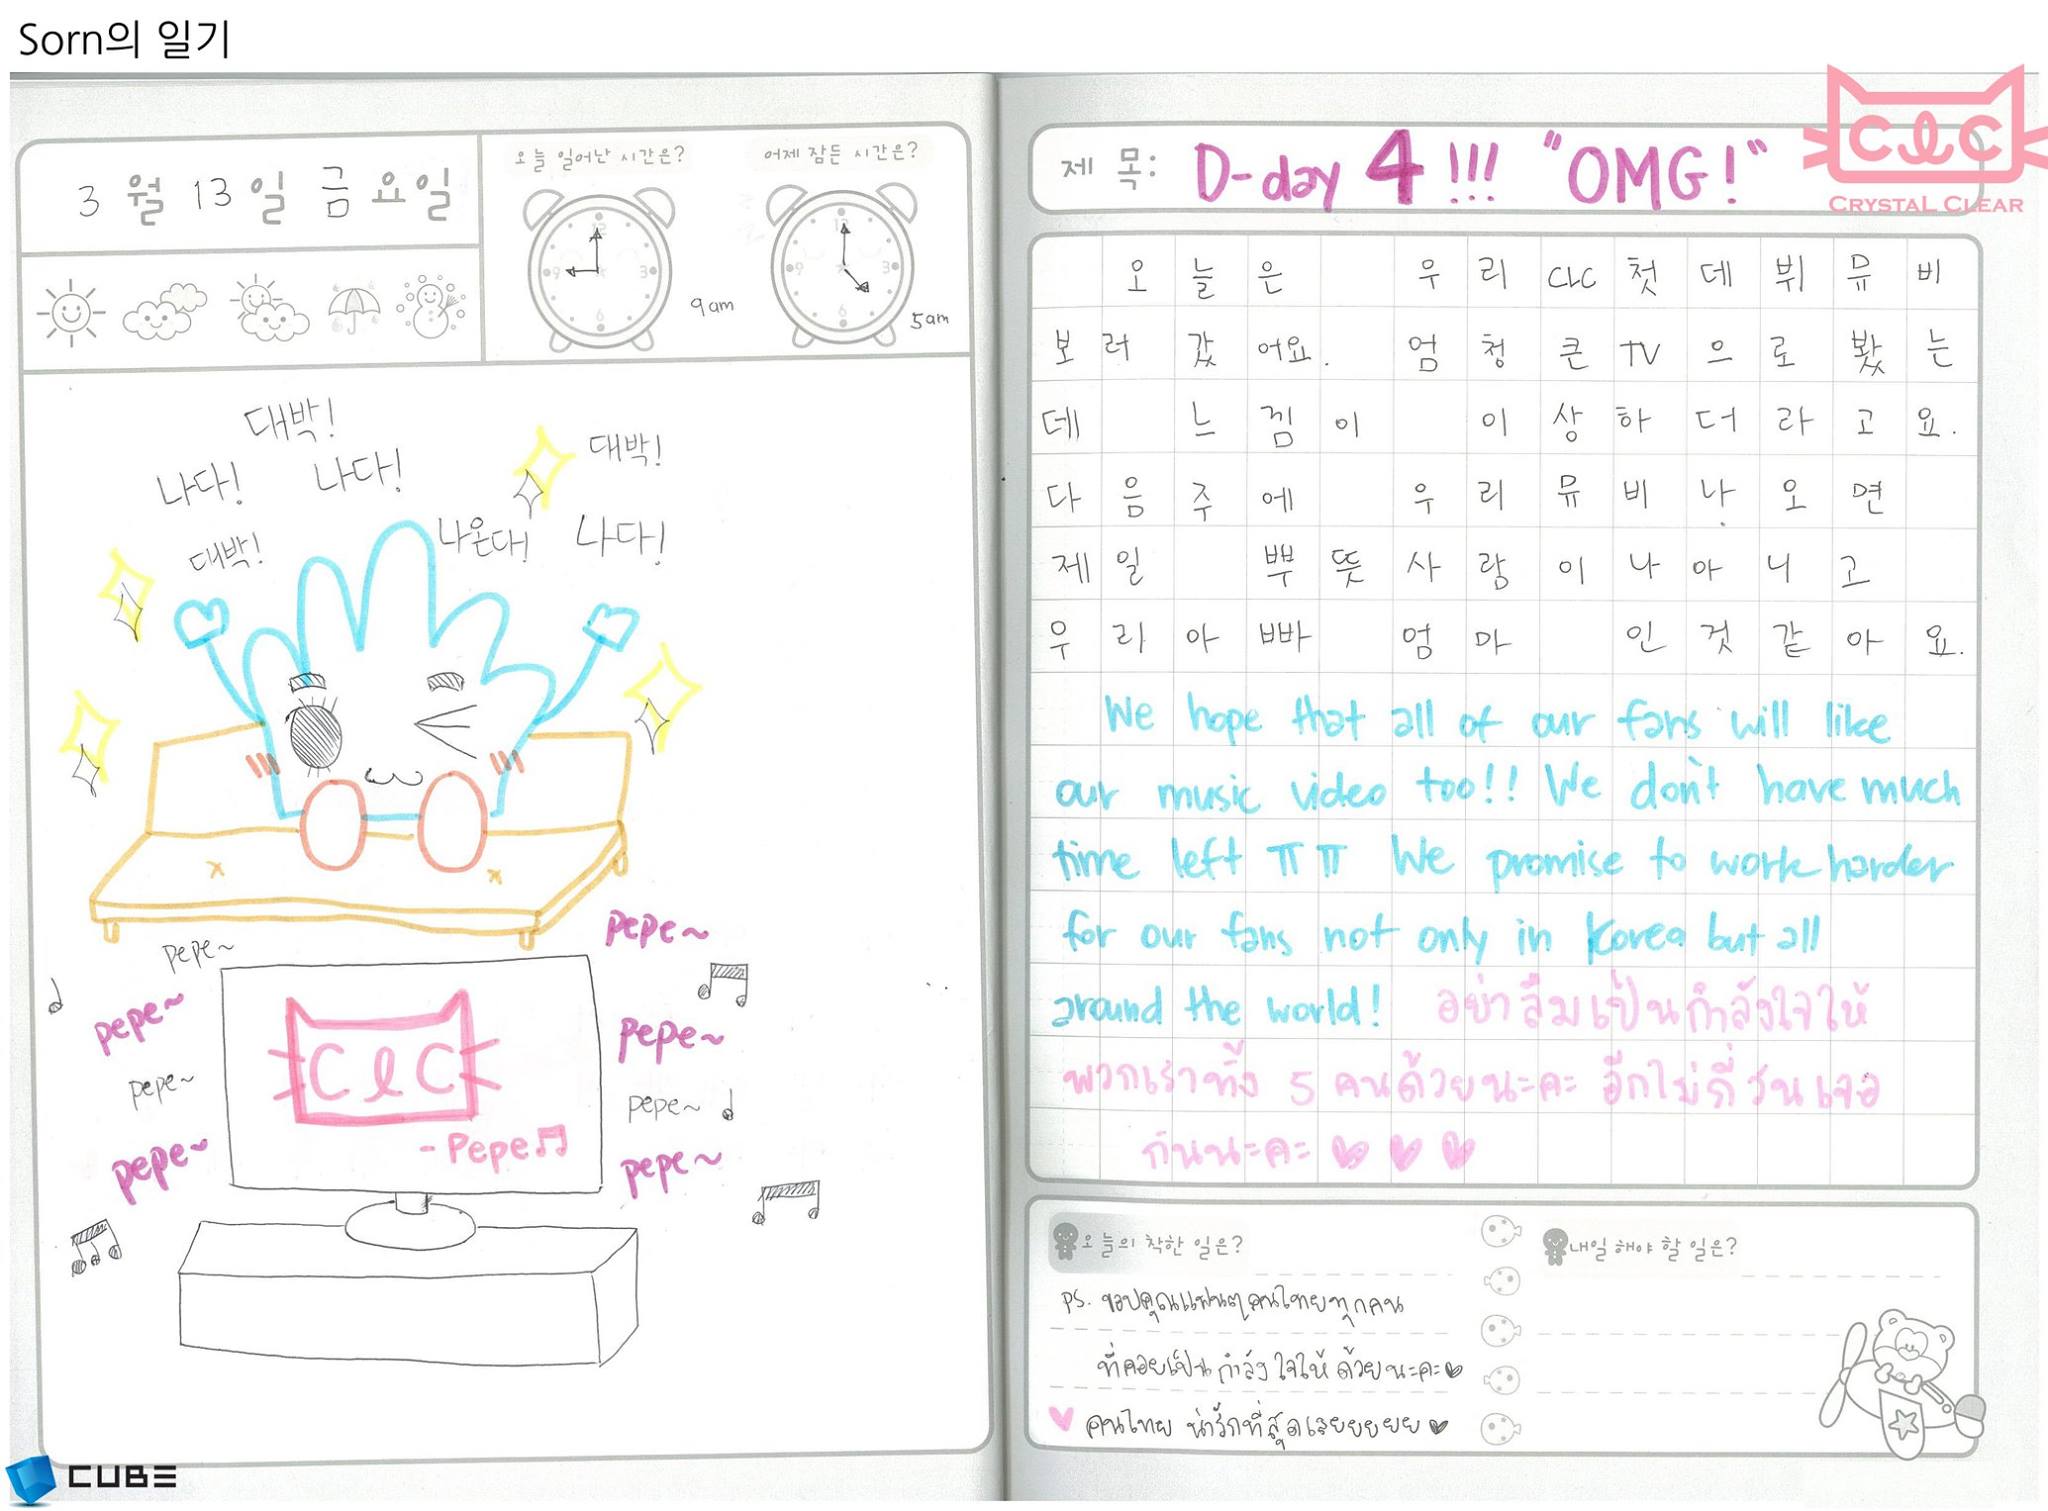 Sorn의 일기
3 월 13 일 금 요일
오늘 일어난 시간은?
어제 잠든 시간은?
9am
5am
대박!
나다! 나다! 대박!
대박! 나온다! 나다!
pepe~ pepe~
pepe~ pepe~
pepe~ pepe~
pepe~ pepe~
CLC
-Pepe♫
CUBE
제 목: D-day 4 !!! "OMG!"
CLC
CRYSTAL CLEAR
오늘은 우리 CLC 첫 데뷔 뮤비
보러 갔어요. 엄청 큰 TV 으로 봤는
데 느낌이 이상하더라고요.
다음주에 우리 뮤비 나오면
제일 뿌뜻 사람이 나 아니고
우리 아빠 엄마 인 것 같아요.
We hope that all of our fans will like
our music video too!! We don't have much
time left ㅠㅠ We promise to work harder
for our fans not only in Korea but all
around the world! อย่าลืมเป็นกำลังใจให้
พวกเราทั้ง 5 คนด้วยนะคะ อีกไม่กี่วันเจอ
กันนะคะ ♥ ♥ ♥
오늘의 착한 일은?
내일 해야 할 일은?
PS. ขอบคุณแฟนๆคนไทยทุกคน
ที่คอยเป็นกำลังใจให้ด้วยนะคะ♥
♥ คนไทย น่ารักที่สุดเลยยยยยย ♥